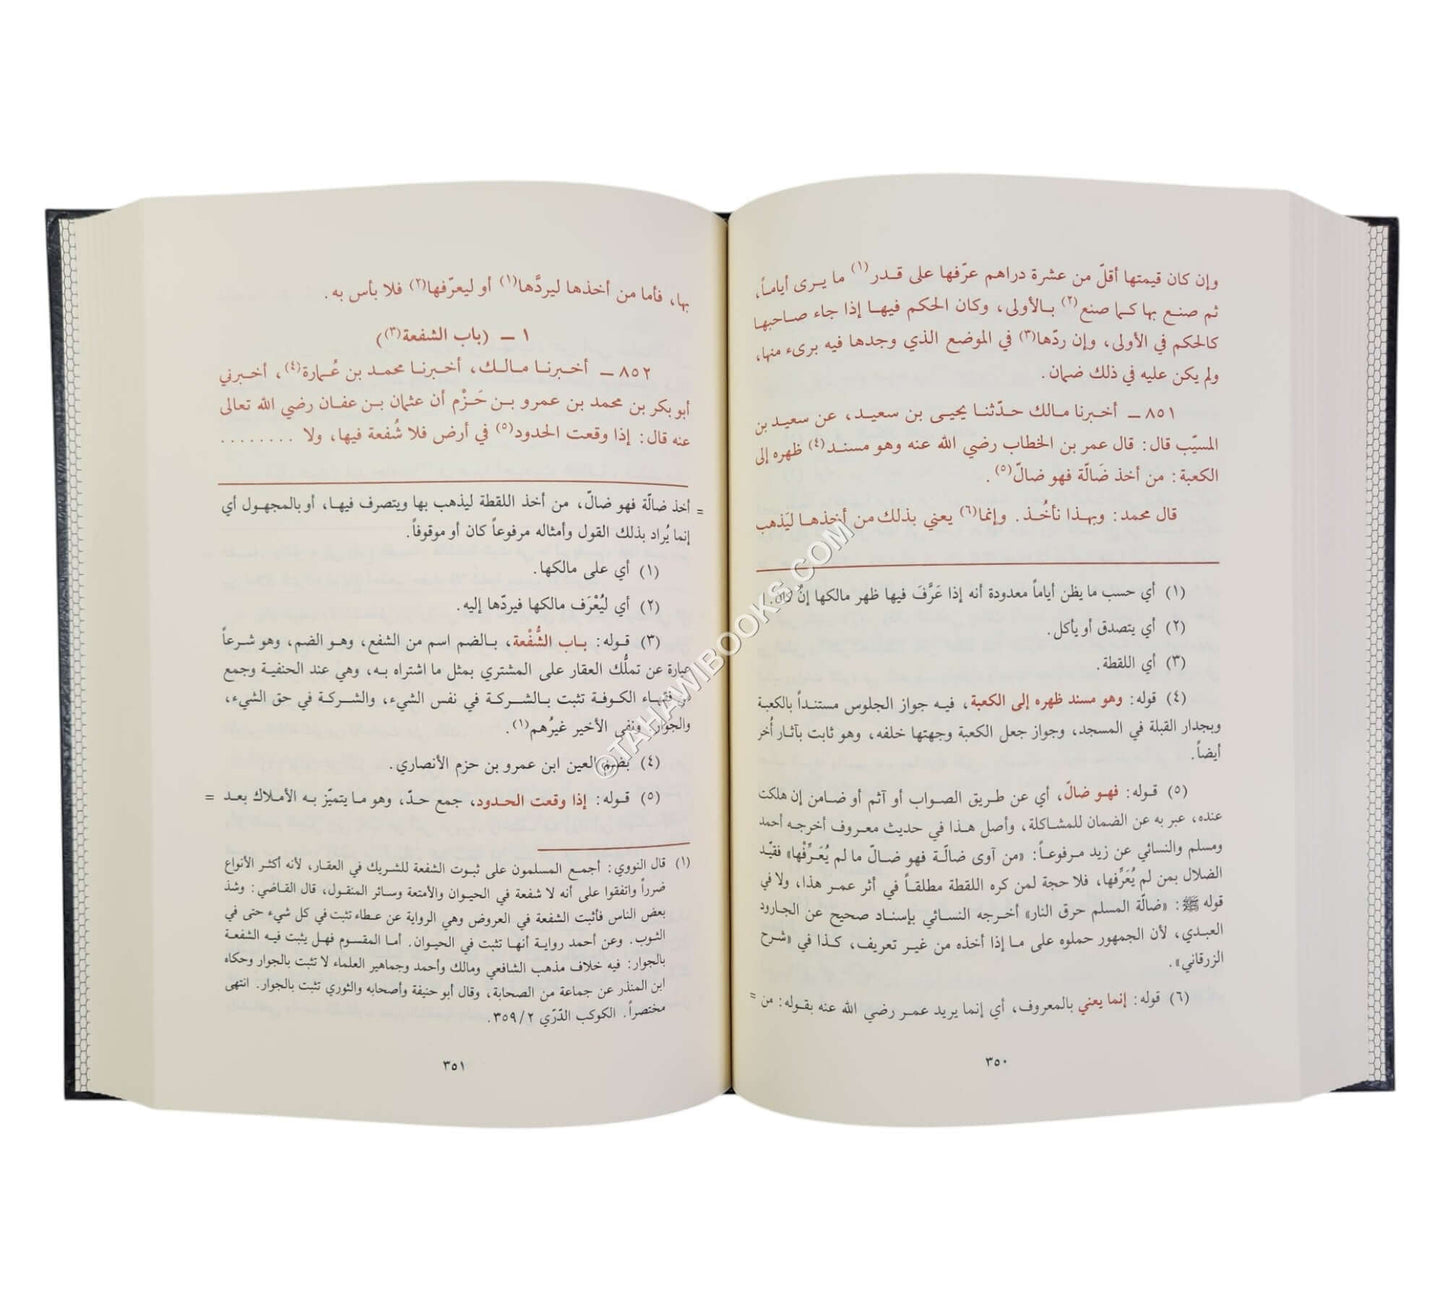 وإن كان قيمتها أقلّ من عشرة دراهم عرّفها على قدر(١) ما يرى أياماً،
ثم صنع بها كما صنع(٢) بالأولى، وكان الحكم فيها إذا جاء صاحبها
كالحكم في الأولى، وإن ردّها(٣) في الموضع الذي وجدها فيه برىء منها،
ولم يكن عليه في ذلك ضمان.
٨٥١ – أخبرنا مالك حدّثنا يحيى بن سعيد، عن سعيد بن
المسيّب قال: قال عمر بن الخطاب رضي الله عنه وهو مسند(٤) ظهره إلى
الكعبة: من أخذ ضَالّة فهو ضالّ(٥).
قال محمد: وبهذا نأخُذ. وإنما(٦) يعني بذلك من أخذها ليَذهب
(١) أي حسب ما يظن أياماً معدودة أنه إذا عَرَّفَ فيها ظهر مالكها إنْ كان.
(٢) أي يتصدق أو يأكل.
(٣) أي اللقطة.
(٤) قوله: وهو مسند ظهره إلى الكعبة، فيه جواز الجلوس مستنداً بالكعبة
وبجدار القبلة في المسجد، وجواز جعل الكعبة وجهتها خلفه، وهو ثابت بآثار أُخر
أيضاً.
(٥) قوله: فهو ضالّ، أي عن طريق الصواب أو آثم أو ضامن إن هلكت
عنده، عبر به عن الضمان للمشاكلة، وأصل هذا في حديث معروف أخرجه أحمد
ومسلم والنسائي عن زيد مرفوعاً: «من آوى ضالّة فهو ضالّ ما لم يُعَرِّفْها» فقيّد
الضلال بمن لم يُعَرِّفها، فلا حجة لمن كره اللقطة مطلقاً في أثر عمر هذا، ولا في
قوله ﷺ: «ضالّة المسلم حرق النار» أخرجه النسائي بإسناد صحيح عن الجارود
العبدي، لأن الجمهور حملوه على ما إذا أخذه من غير تعريف، كذا في «شرح
الزرقاني».
(٦) قوله: إنما يعني بالمعروف، أي إنما يريد عمر رضي الله عنه بقوله: من =
٣٥٠
بها، فأما من أخذها ليردَّها(١) أو ليعرّفها(٢) فلا بأس به.
١ – (باب الشفعة(٣))
٨٥٢ – أخبرنا مالك، أخبرنا محمد بن عُمارة(٤)، أخبرني
أبو بكر بن محمد بن عمرو بن حَزْم أن عثمان بن عفان رضي الله تعالى
عنه قال: إذا وقعت الحدود(٥) في أرض فلا شُفعة فيها، ولا ........
= أخذ ضالّة فهو ضالّ، من أخذ اللقطة ليذهب بها ويتصرف فيها، أو بالمجهول أي
إنما يُراد بذلك القول وأمثاله مرفوعاً كان أو موقوفاً.
(١) أي على مالكها.
(٢) أي ليُعْرَف مالكها فيردّها إليه.
(٣) قوله: باب الشُّفْعة، بالضم اسم من الشفع، وهو الضم، وهو شرعاً
عبارة عن تملُّك العقار على المشتري بمثل ما اشتراه به، وهي عند الحنفية وجمع
من فقهاء الكوفة تثبت بالشركة في نفس الشيء، والشركة في حق الشيء،
والجوار، ونفى الأخير غيرُهم(١).
(٤) بضم العين ابن عمرو بن حزم الأنصاري.
(٥) قوله: إذا وقعت الحدود، جمع حدّ، وهو ما يتميّز به الأملاك بعد =
(١) قال النووي: أجمع المسلمون على ثبوت الشفعة للشريك في العقار، لأنه أكثر الأنواع
ضرراً واتفقوا على أنه لا شفعة في الحيوان والأمتعة وسائر المنقول، قال القاضي: وشذ
بعض الناس فأثبت الشفعة في العروض وهي الرواية عن عطاء تثبت في كل شيء حتى في
الثوب. وعن أحمد رواية أنها تثبت في الحيوان. أما المقسوم فهل يثبت فيه الشفعة
بالجوار: فيه خلاف مذهب الشافعي ومالك وأحمد وجماهير العلماء لا تثبت بالجوار وحكاه
ابن المنذر عن جماعة من الصحابة، وقال أبو حنيفة وأصحابه والثوري تثبت بالجوار. انتهى
مختصراً. الكوكب الدّرّي ٣٥٩/٢.
٣٥١
©TAHAWIBOOKS.COM